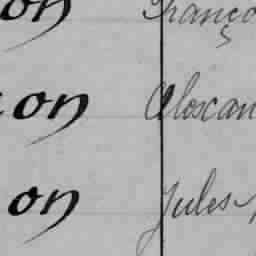 on Franço
on Alexan
on Jules